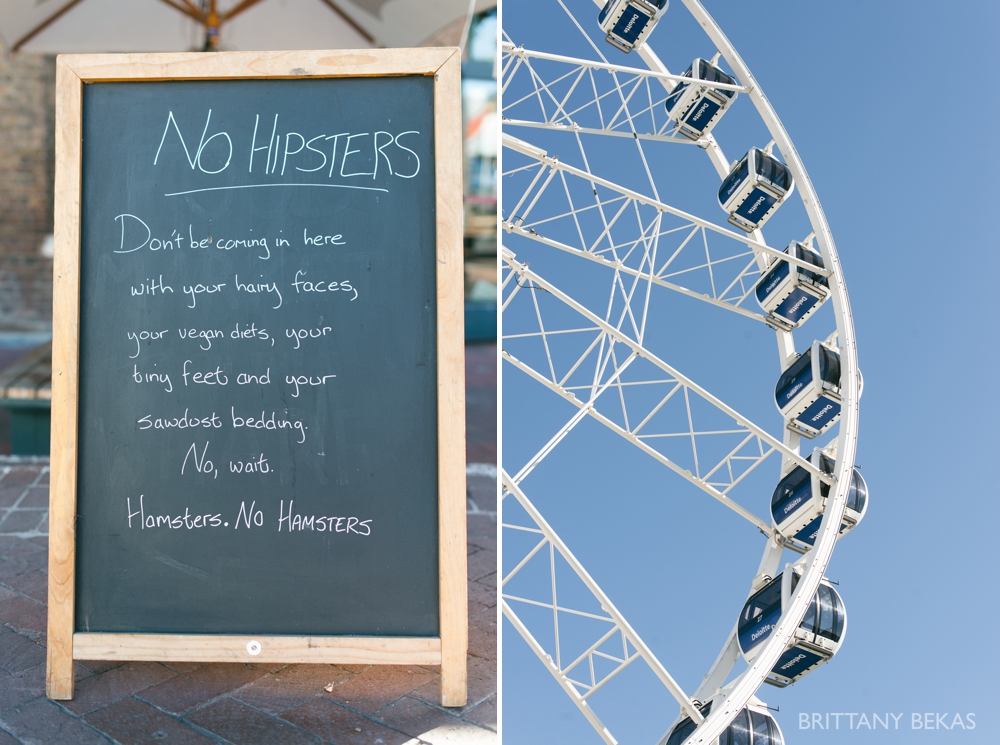 NO HIPSTERS
Don't be coming in here
with your hairy faces,
your vegan diets, your
tiny feet and your
sawdust bedding.
No, wait.
Hamsters. NO HAMSTERS
Deloitte
Deloitte
Deloitte
Deloitte
Deloitte
Deloitte
Deloitte
BRITTANY BEKAS